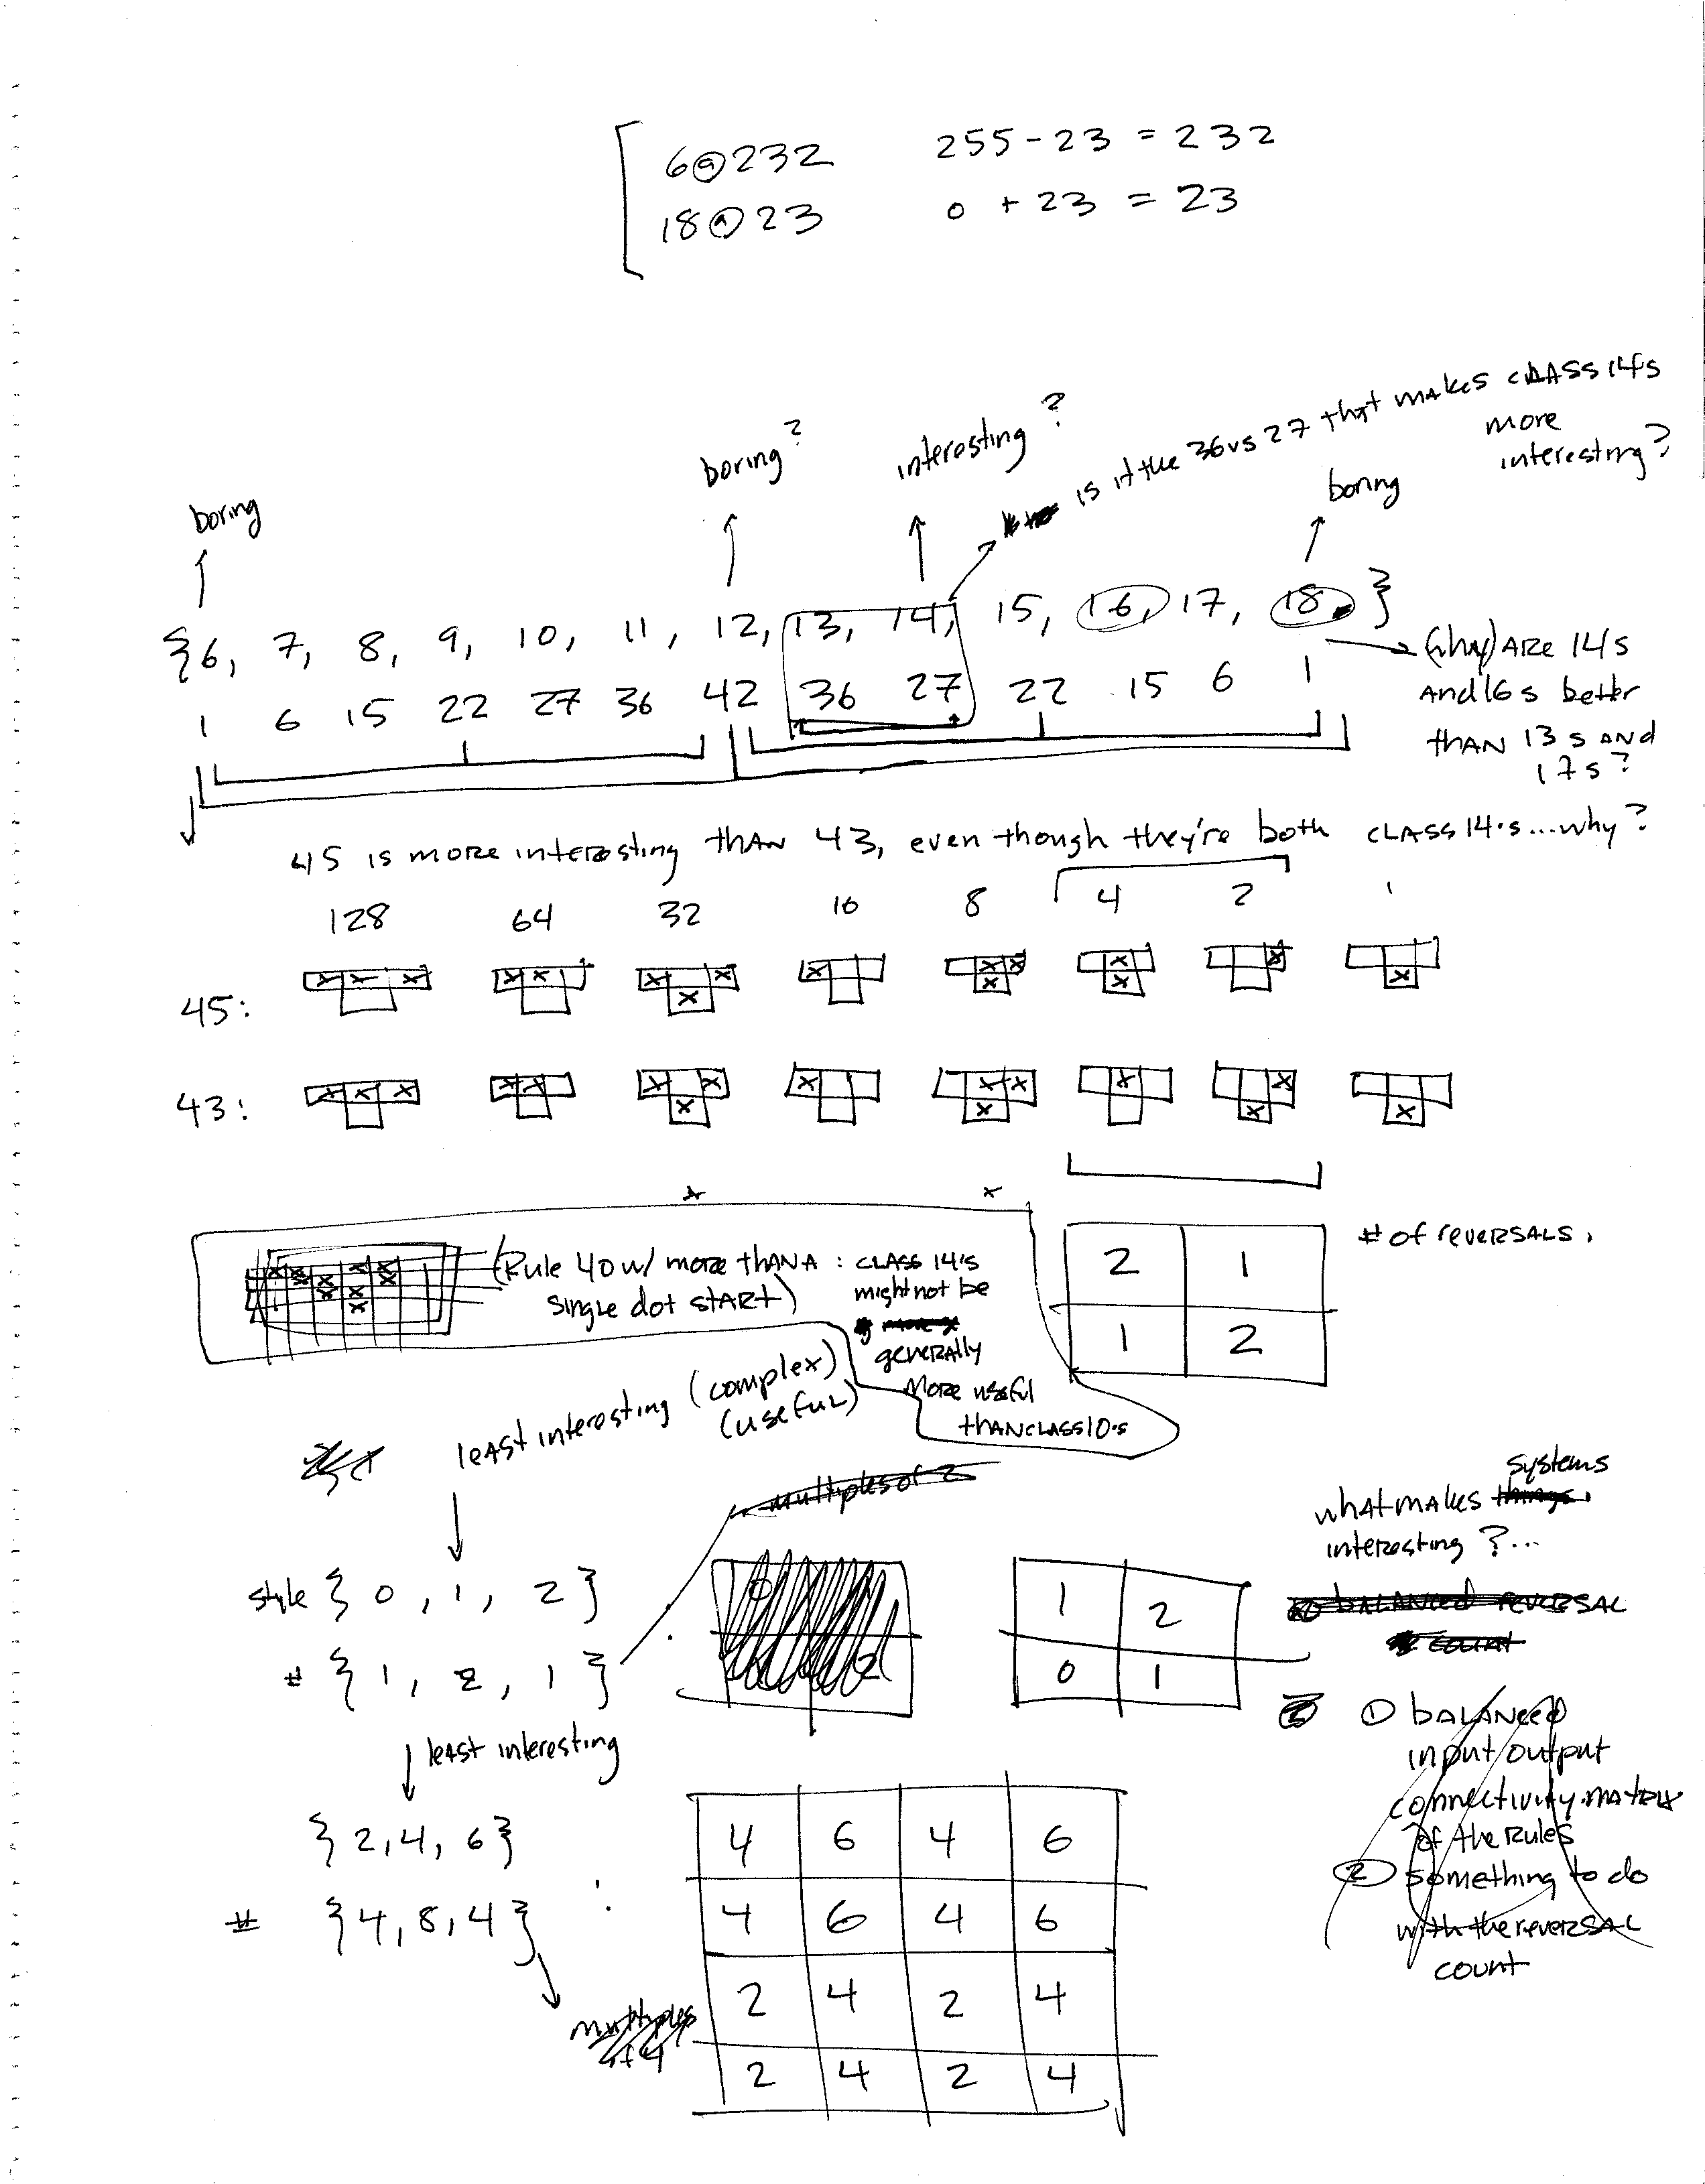 6@232 255-23 = 232
18@23 0 + 23 = 23
boring
boring?
interesting?
is it the 36 vs 27 that makes CLASS 14s
more
interesting?
boring
{6, 7, 8, 9, 10, 11, 12, 13, 14, 15, 16, 17, 18. }
1 6 15 22 27 36 42 36 27 22 15 6 1
(why) ARE 14s
And 16s better
than 13s AND
17s?
45 is more interesting than 43, even though they're both CLASS 14's...why?
128 64 32 16 8 4 2 1
45: x x x x x x x x x x x x x x x x
43: x x x x x x x x x x x x x x x x
x x
(Rule 40 w/ more than A : CLASS 14's
single dot start) might not be
generally
more useful
than class 10's
2 1
1 2
# of reversals.
least interesting (complex)
(useful)
multiples of 2
style { 0, 1, 2 }
# { 1, 2, 1 }
1 2
0 1
what makes things systems
interesting?...
balanced reversal
count
① balanced
input/output
connectivity matrix
of the Rules
② something to do
with the reversal
count
least interesting
{ 2, 4, 6 }
# { 4, 8, 4 }
multiples
of 4
4 6 4 6
4 6 4 6
2 4 2 4
2 4 2 4